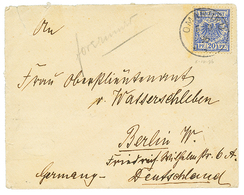 An
Frau Oberstlieutenant
v. Watterschleben
Berlin W.
Friedrich Wilhelmstr. 6 A.
Germany. Deutschland
20
OM